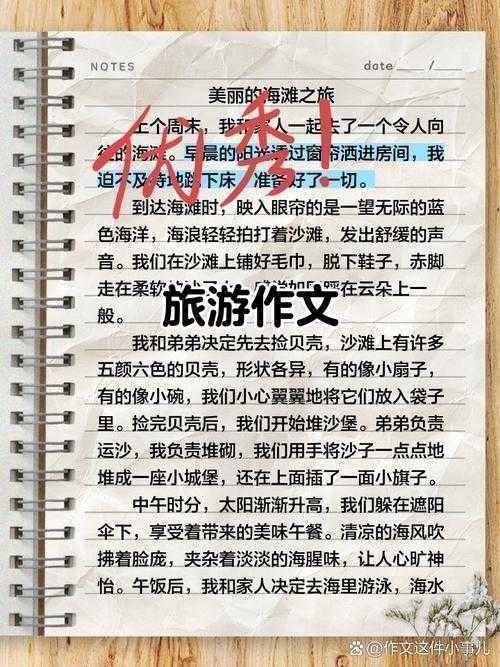 NOTES
date /
美丽的海滩之旅
上个周末，我和家人一起去了一个令人向
往的海滩。早晨的阳光透过窗帘洒进房间，我
迫不及待地跳下床，准备好了一切。
优秀!
到达海滩时，映入眼帘的是一望无际的蓝
色海洋，海浪轻轻拍打着沙滩，发出舒缓的声
音。我们在沙滩上铺好毛巾，脱下鞋子，赤脚
走在柔软 在云朵上一
般。
旅游作文
我和弟弟决定先去捡贝壳，沙滩上有许多
五颜六色的贝壳，形状各异，有的像小扇子，
有的像小碗，我们小心翼翼地将它们放入袋子
里。捡完贝壳后，我们开始堆沙堡。弟弟负责
运沙，我负责堆砌，我们用手将沙子一点点地
堆成一座小城堡，还在上面插了一面小旗子。
中午时分，太阳渐渐升高，我们躲在遮阳
伞下，享受着带来的美味午餐。清凉的海风吹
拂着脸庞，夹杂着淡淡的海腥味，让人心旷神
怡。午饭后，我和家人决定去海里游泳，海水
@作文这件小事儿